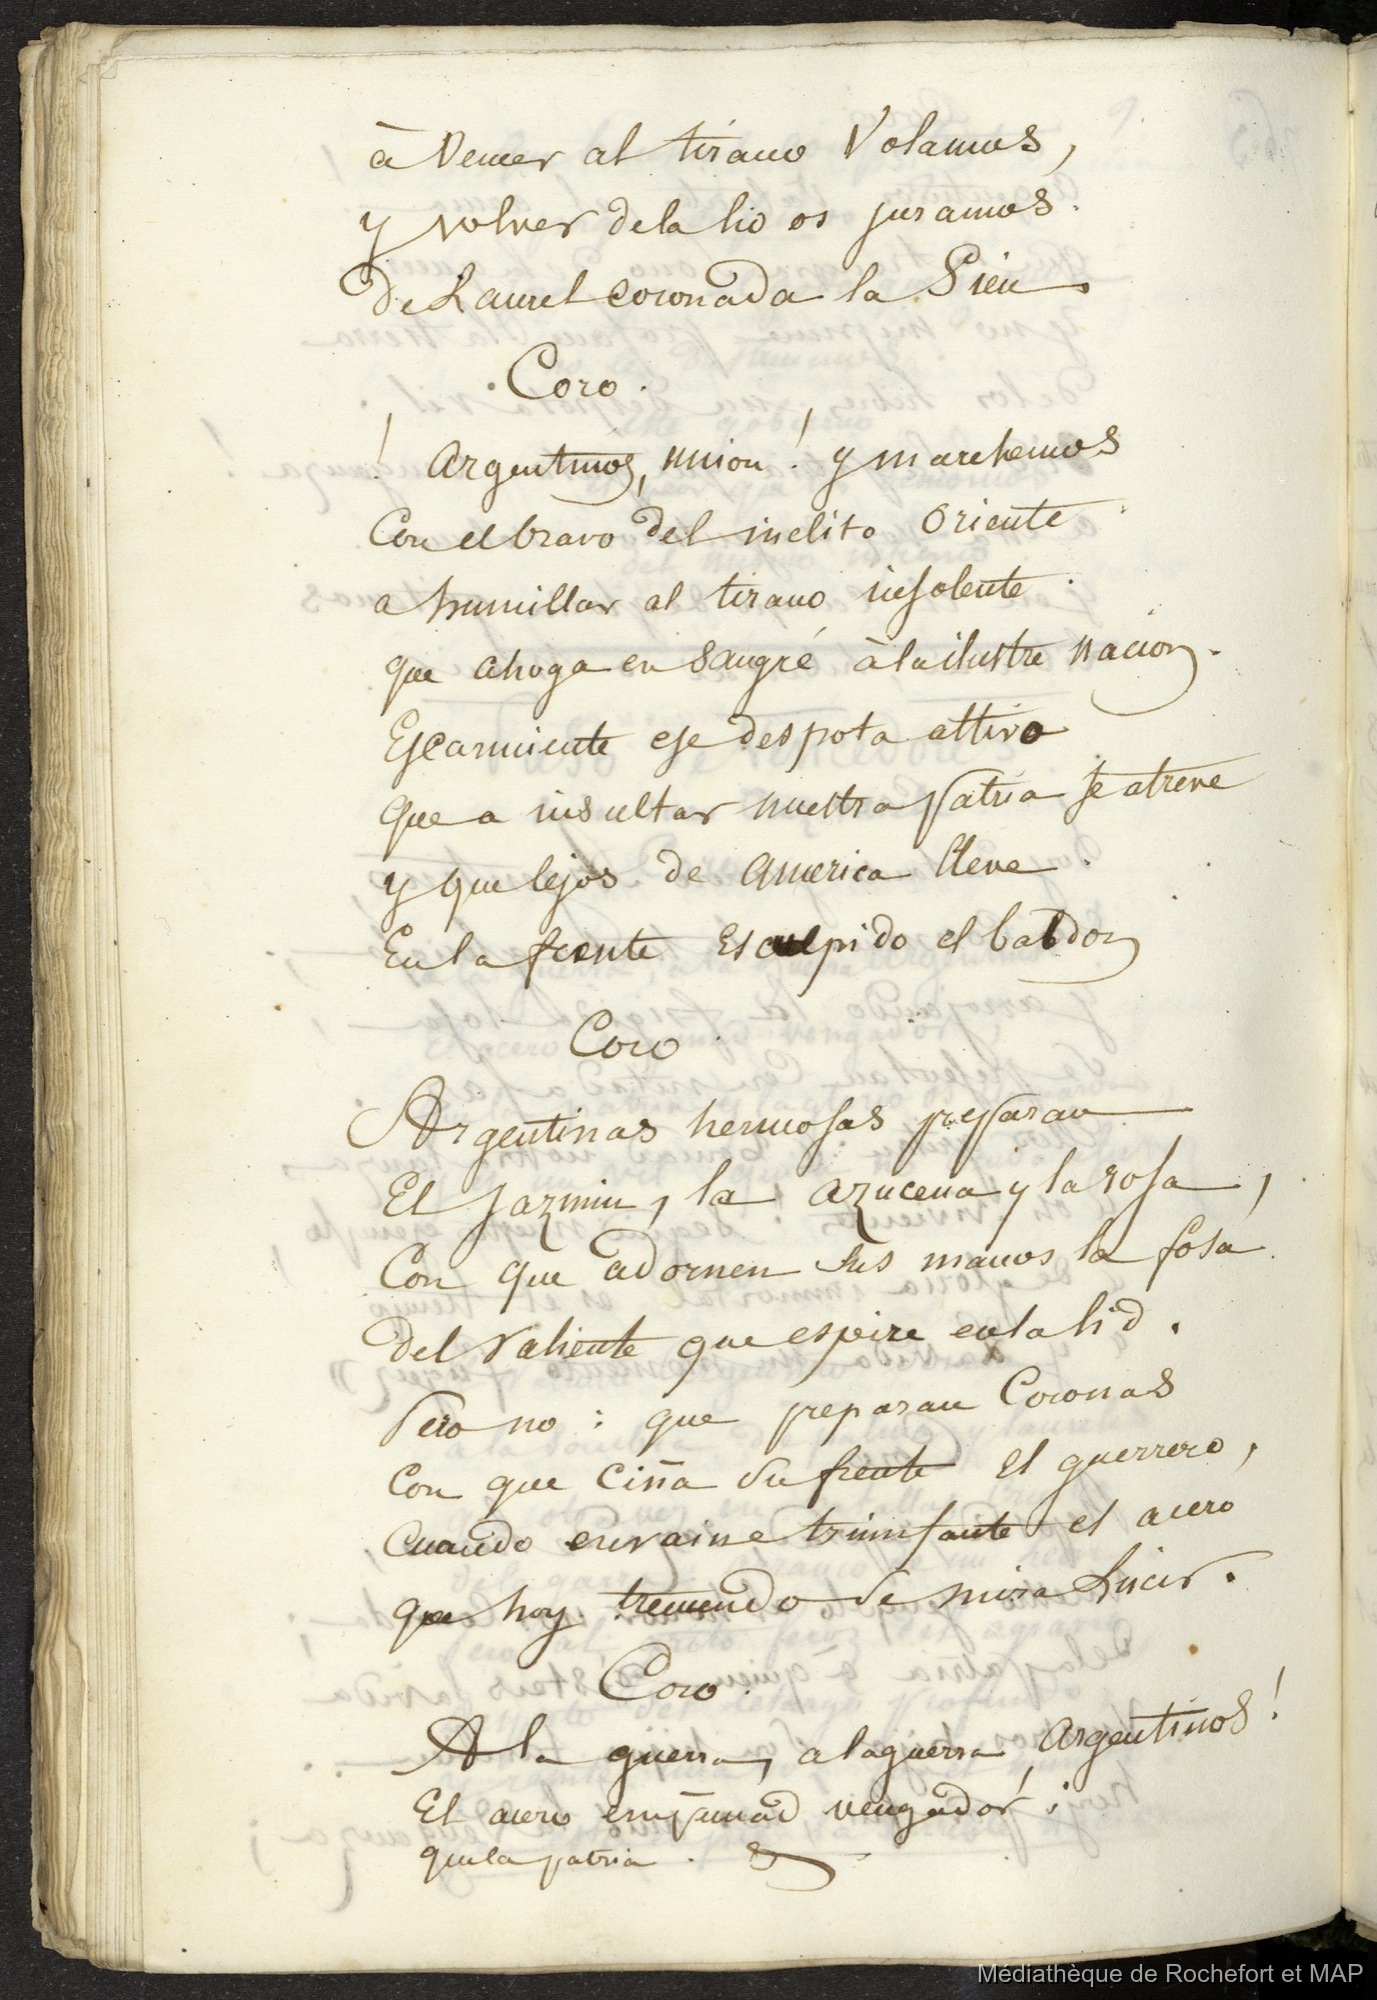 à Vencer al tirano Volamos,
y volver dela lid os juramos.
de Laurel coronada la Sien.
Coro.
! Argentinos, union! y marchemos
Con el bravo del inclito Oriente
a humillar al tirano insolente
que ahoga en sangré à la ilustre nacion.
Escarmiente ese despota altivo
que a insultar nuestra patria se atreve
y que lejos de America lleve
En la frente Esculpido el baldon
Coro
Argentinas hermosas preparan
El jazmin, la azucena y la rosa,
Con que adornen sus manos la fosa
Del valiente que espire en la lid.
Pero no: que preparan Coronas
Con que Ciña su frente El guerrero,
Cuando envaine triunfante el acero
que hoy tremendo se mira Lucir.
Coro.
A la guerra, a la guerra Argentinos!
El acero empuñad vengador;
que la patria.
Médiathèque de Rochefort et MAP